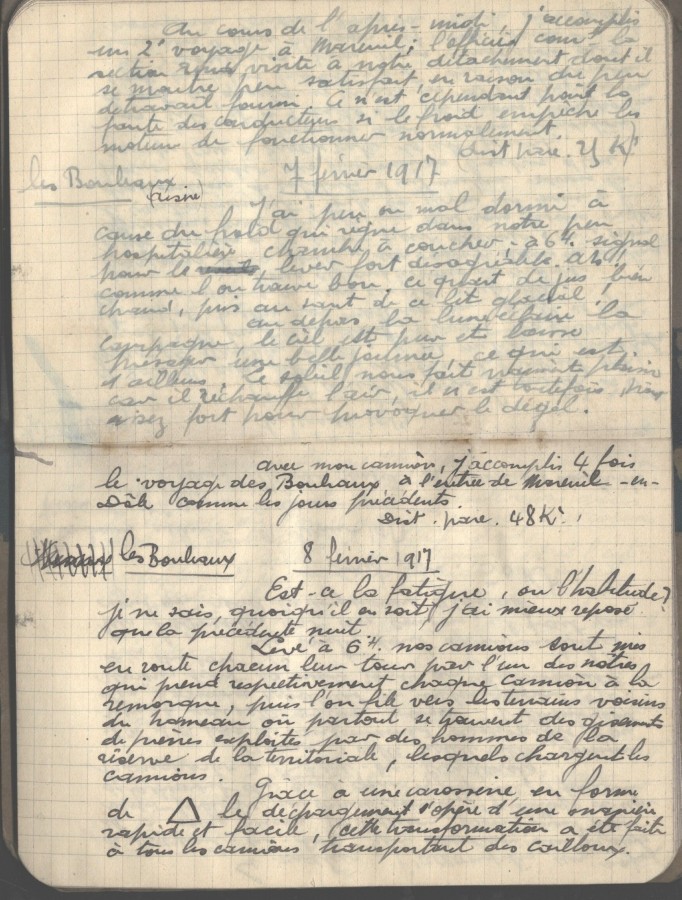 Au cours de l'après-midi, j'accomplis
un 2e voyage à Mareuil; l'officier comt la
section rend visite à notre détachement dont il
se montre peu satisfait, en raison du peu
de travail fourni. Ce n'est cependant point la
faute des conducteurs si le froid empêche les
moteurs de fonctionner normalement.
(Dist. parc. 25 K.
les Bouleaux 7 février 1917
(Aisne)
J'ai peu ou mal dormi à
cause du froid qui règne dans notre peu
hospitalière chambre à coucher - à 6h. signal
pour le lever fort désagréable. Ah!
comme l'on trouve bon ce quart de jus, bien
chaud, pris au saut de ce lit glacial!
au départ la lune éclaire la
campagne, le ciel est pur et laisse
présager une belle journée, ce qui est
d'ailleurs, le soleil nous fait vraiment plaisir
car il réchauffe l'air, il n'est toutefois pas
assez fort pour provoquer le dégel.
avec mon camion, j'accomplis 4 fois
le voyage des Bouleaux à l'entrée de Mareuil-en-
Dôle comme les jours précédents.
Dist. parc. 48 K.
les Bouleaux 8 fevrier 1917
Est-ce la fatigue, ou l'habitude?
je ne sais, quoiqu'il en soit, j'ai mieux reposé
que la précédente nuit.
Levé à 6H. nos camions sont mis
en route chacun leur tour par l'un des nôtres
qui prend respectivement chaque camion à la
remorque, puis l'on file vers les terrains voisins
du hameau où partout se trouvent des gisements
de pierres exploités par des hommes de la
réserve de la territoriale, lesquels chargent les
camions.
Grâce à une carosserie en forme
de △ le déchargement s'opère d'une manière
rapide et facile, cette transformation a été faite
à tous les camions transportant des cailloux.